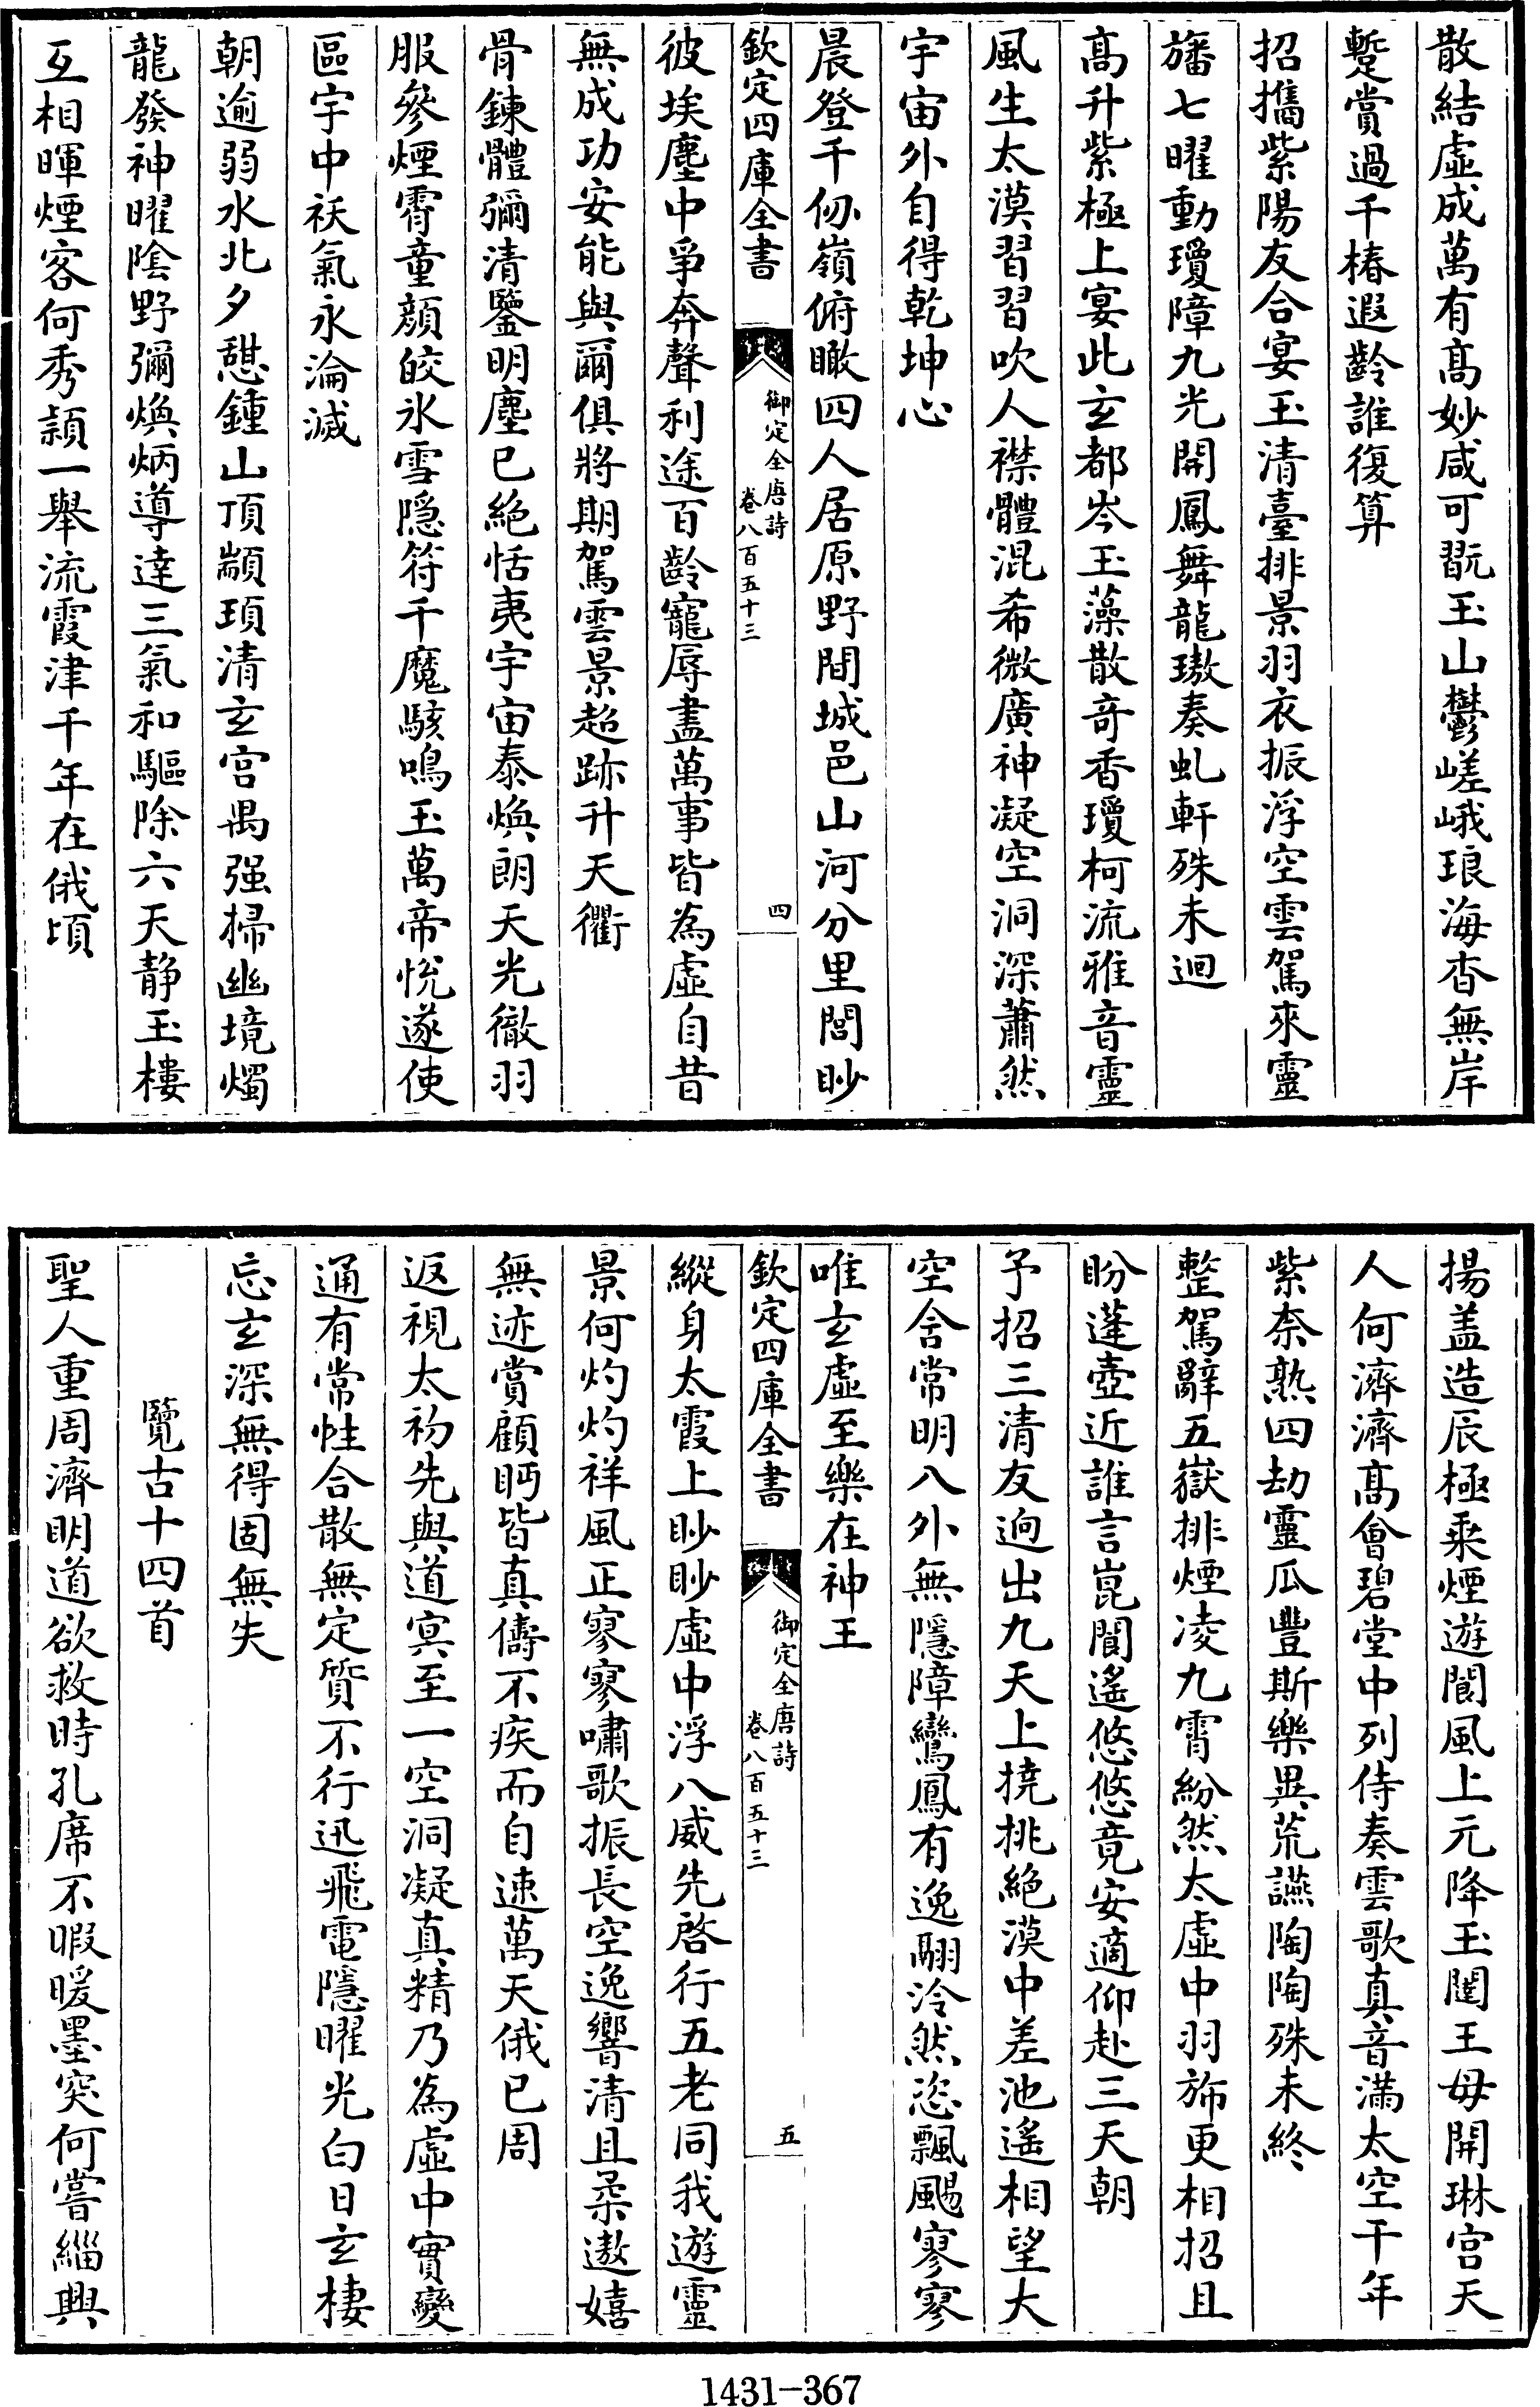 散結虛成萬有高妙咸可翫玉山鬱嵯峨琅海杳無岸
蹔賞過千椿遐齡誰復算
招攜紫陽友合宴玉清臺排景羽衣振浮空雲駕來靈
旛七曜動瓊障九光開鳳舞龍璈奏虬軒殊未迴
高升紫極上宴此玄都岑玉藻散奇香瓊柯流雅音靈
風生太漠習習吹人襟體混希微廣神凝空洞深蕭然
宇宙外自得乾坤心
晨登千仭嶺俯瞰四人居原野間城邑山河分里閭眇
欽定四庫全書
御定全唐詩
卷八百五十三
四
彼埃塵中爭奔聲利途百齡寵辱盡萬事皆為虛自昔
無成功安能與爾俱將期駕雲景超跡升天衢
骨鍊體彌清鑒明塵已絕恬夷宇宙泰煥朗天光徹羽
服參煙霄童顏皎氷雪隱符千魔駭鳴玉萬帝悅遂使
區宇中祅氣永淪滅
朝逾弱水北夕憇鍾山頂顓頊清玄宮禺强掃幽境燭
龍發神曜陰野彌煥炳導達三氣和驅除六天静玉樓
互相暉煙客何秀頴一舉流霞津千年在俄頃
揚盖造辰極乘煙遊閬風上元降玉闥王母開琳宮天
人何濟濟高會碧堂中列侍奏雲歌真音滿太空千年
紫柰熟四劫靈瓜豐斯樂異荒讌陶陶殊未終
整駕辭五嶽排煙凌九霄紛然太虛中羽斾更相招且
盼蓬壺近誰言崑閬遙悠悠竟安適仰赴三天朝
予招三清友迥出九天上撓挑絕漠中差池遙相望大
空含常明八外無隱障鸞鳳有逸翮泠然恣飄颺寥寥
唯玄虛至樂在神王
欽定四庫全書
御定全唐詩
卷八百五十三
五
縱身太霞上眇眇虛中浮八威先啓行五老同我遊靈
景何灼灼祥風正寥寥嘯歌振長空逸響清且柔遨嬉
無迹賞顧眄皆真儔不疾而自速萬天俄已周
返視太初先與道冥至一空洞凝真精乃為虛中實變
通有常性合散無定質不行迅飛電隱曜光白日玄棲
忘玄深無得固無失
覽古十四首
聖人重周濟明道欲救時孔席不暇暖墨突何嘗緇興
1431-367